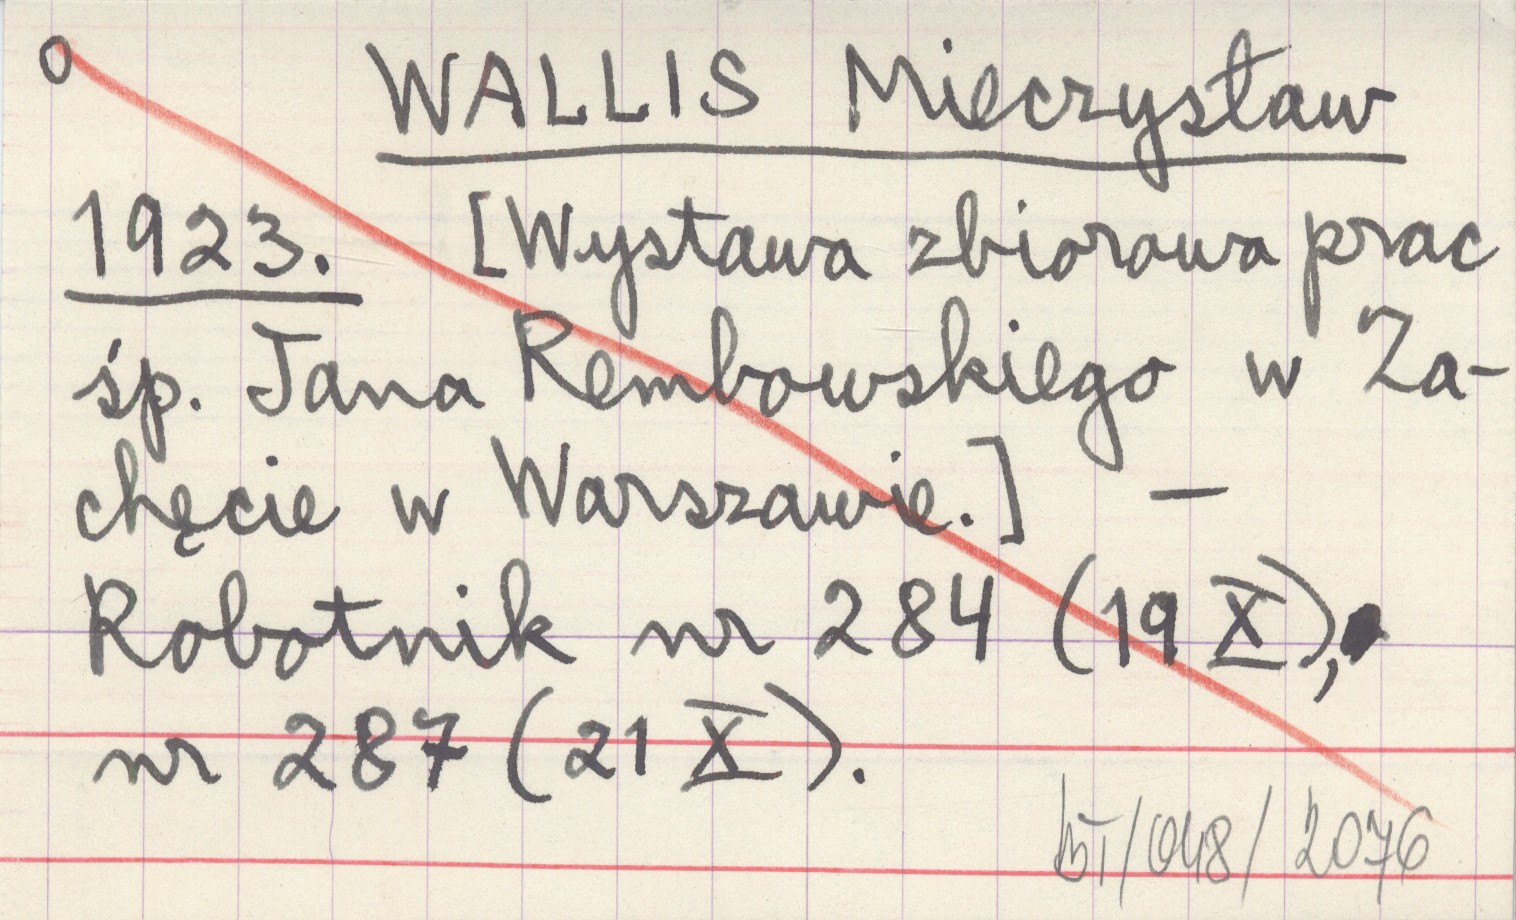 O WALLIS Mieczysław
1923. [Wystawa zbiorowa prac
śp. Jana Rembowskiego w Za-
chęcie w Warszawie.] —
Robotnik nr 284 (19 X),
nr 287 (21 X).
/048/2076